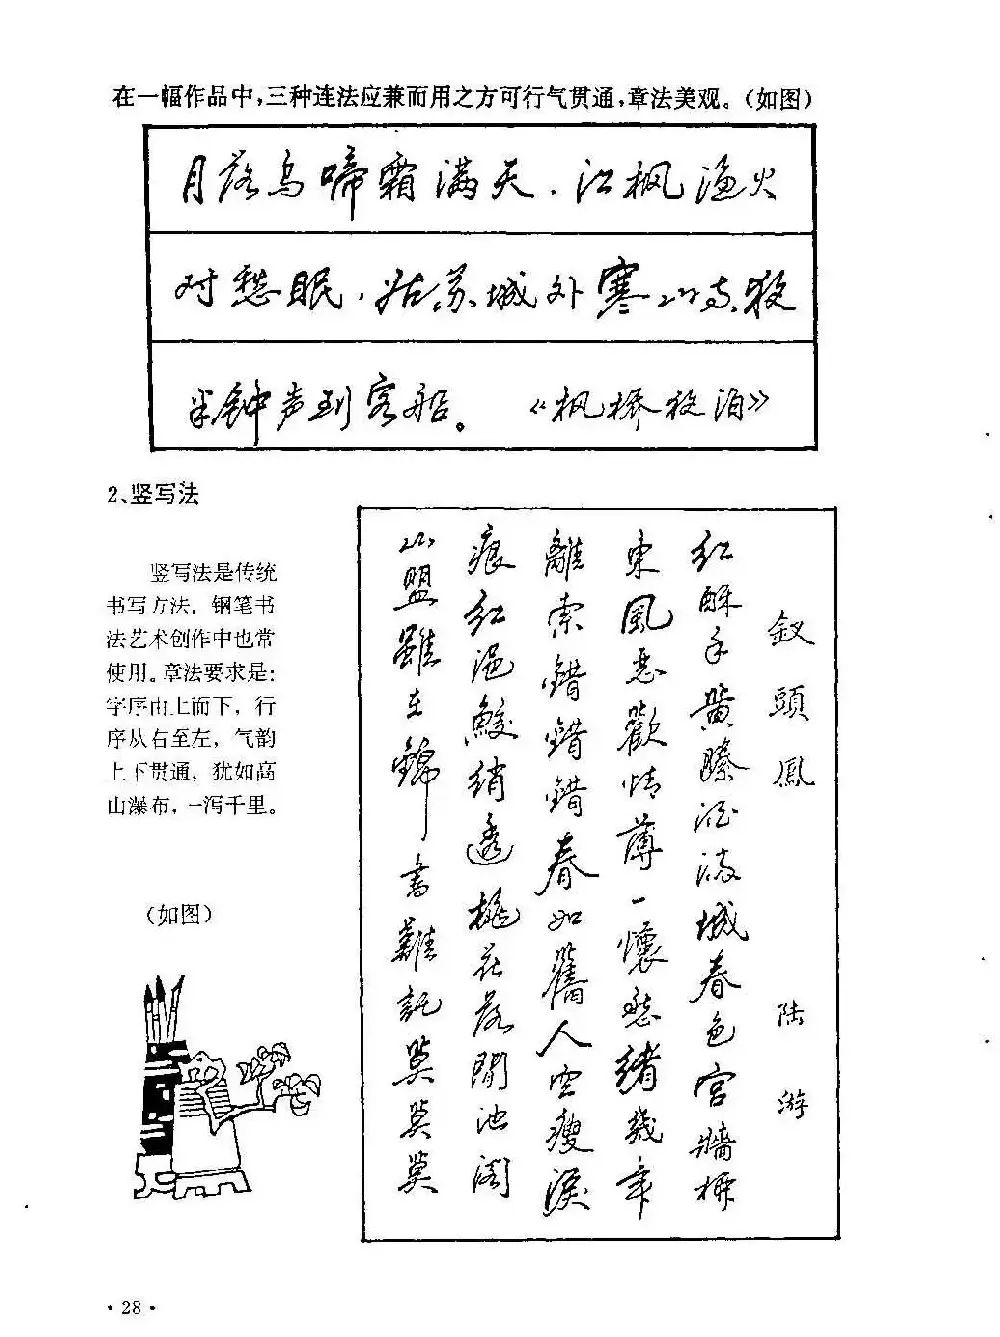 在一幅作品中,三种连法应兼而用之方可行气贯通,章法美观。(如图)
月落乌啼霜满天.江枫渔火
对愁眠,姑苏城外寒山寺.夜
半钟声到客船。 《枫桥夜泊》
2、竖写法
竖写法是传统
书写方法,钢笔书
法艺术创作中也常
使用。章法要求是:
字序由上而下,行
序从右至左,气韵
上下贯通,犹如高
山瀑布,一泻千里。
(如图)
釵頭鳳 陆游
红酥手黄滕酒满城春色宫牆柳
東風惡歡情薄一懷愁緒幾年
離索錯錯錯春如舊人空瘦淚
痕红浥鮫綃透桃花落閒池阁
山盟雖在錦書難託莫莫莫
·28·